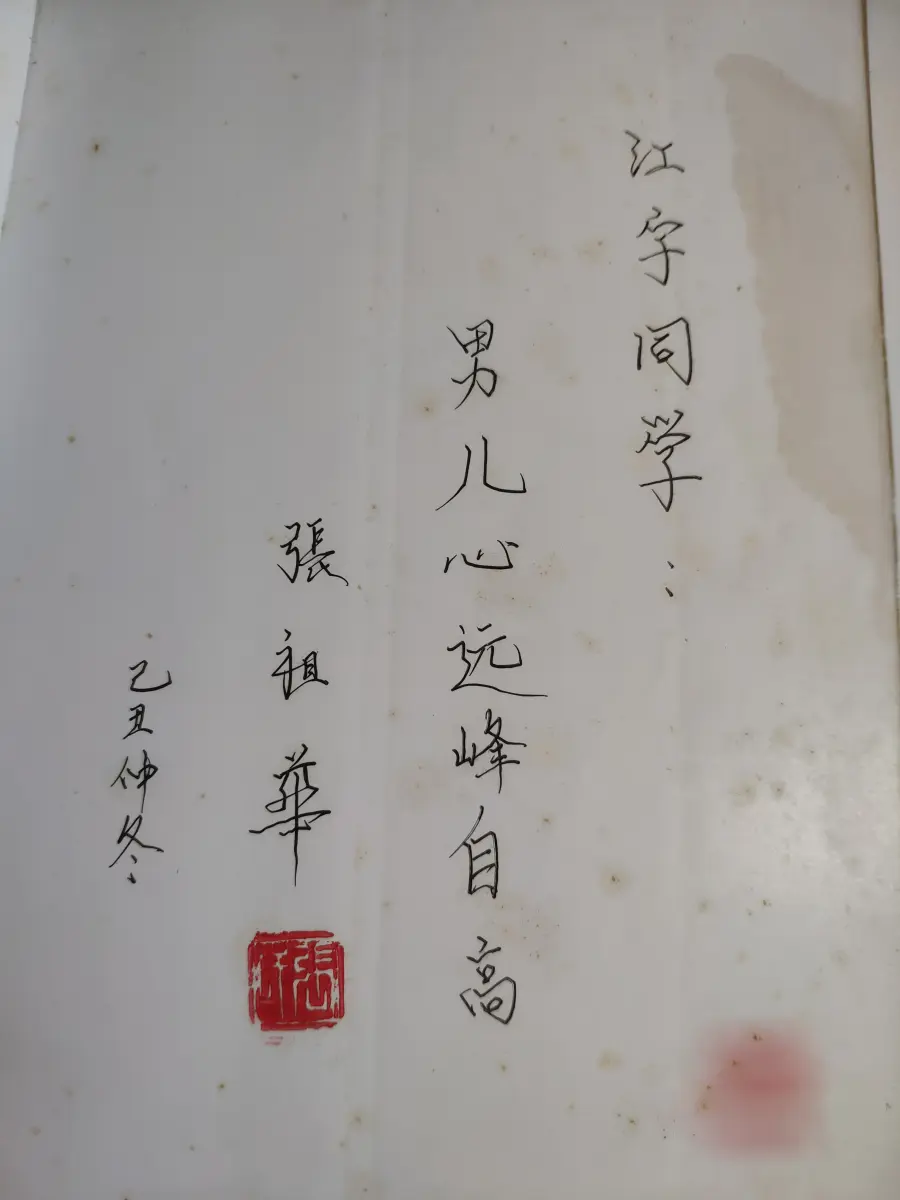 江宇同学：
男儿心远峰自高
張祖華
己丑仲冬